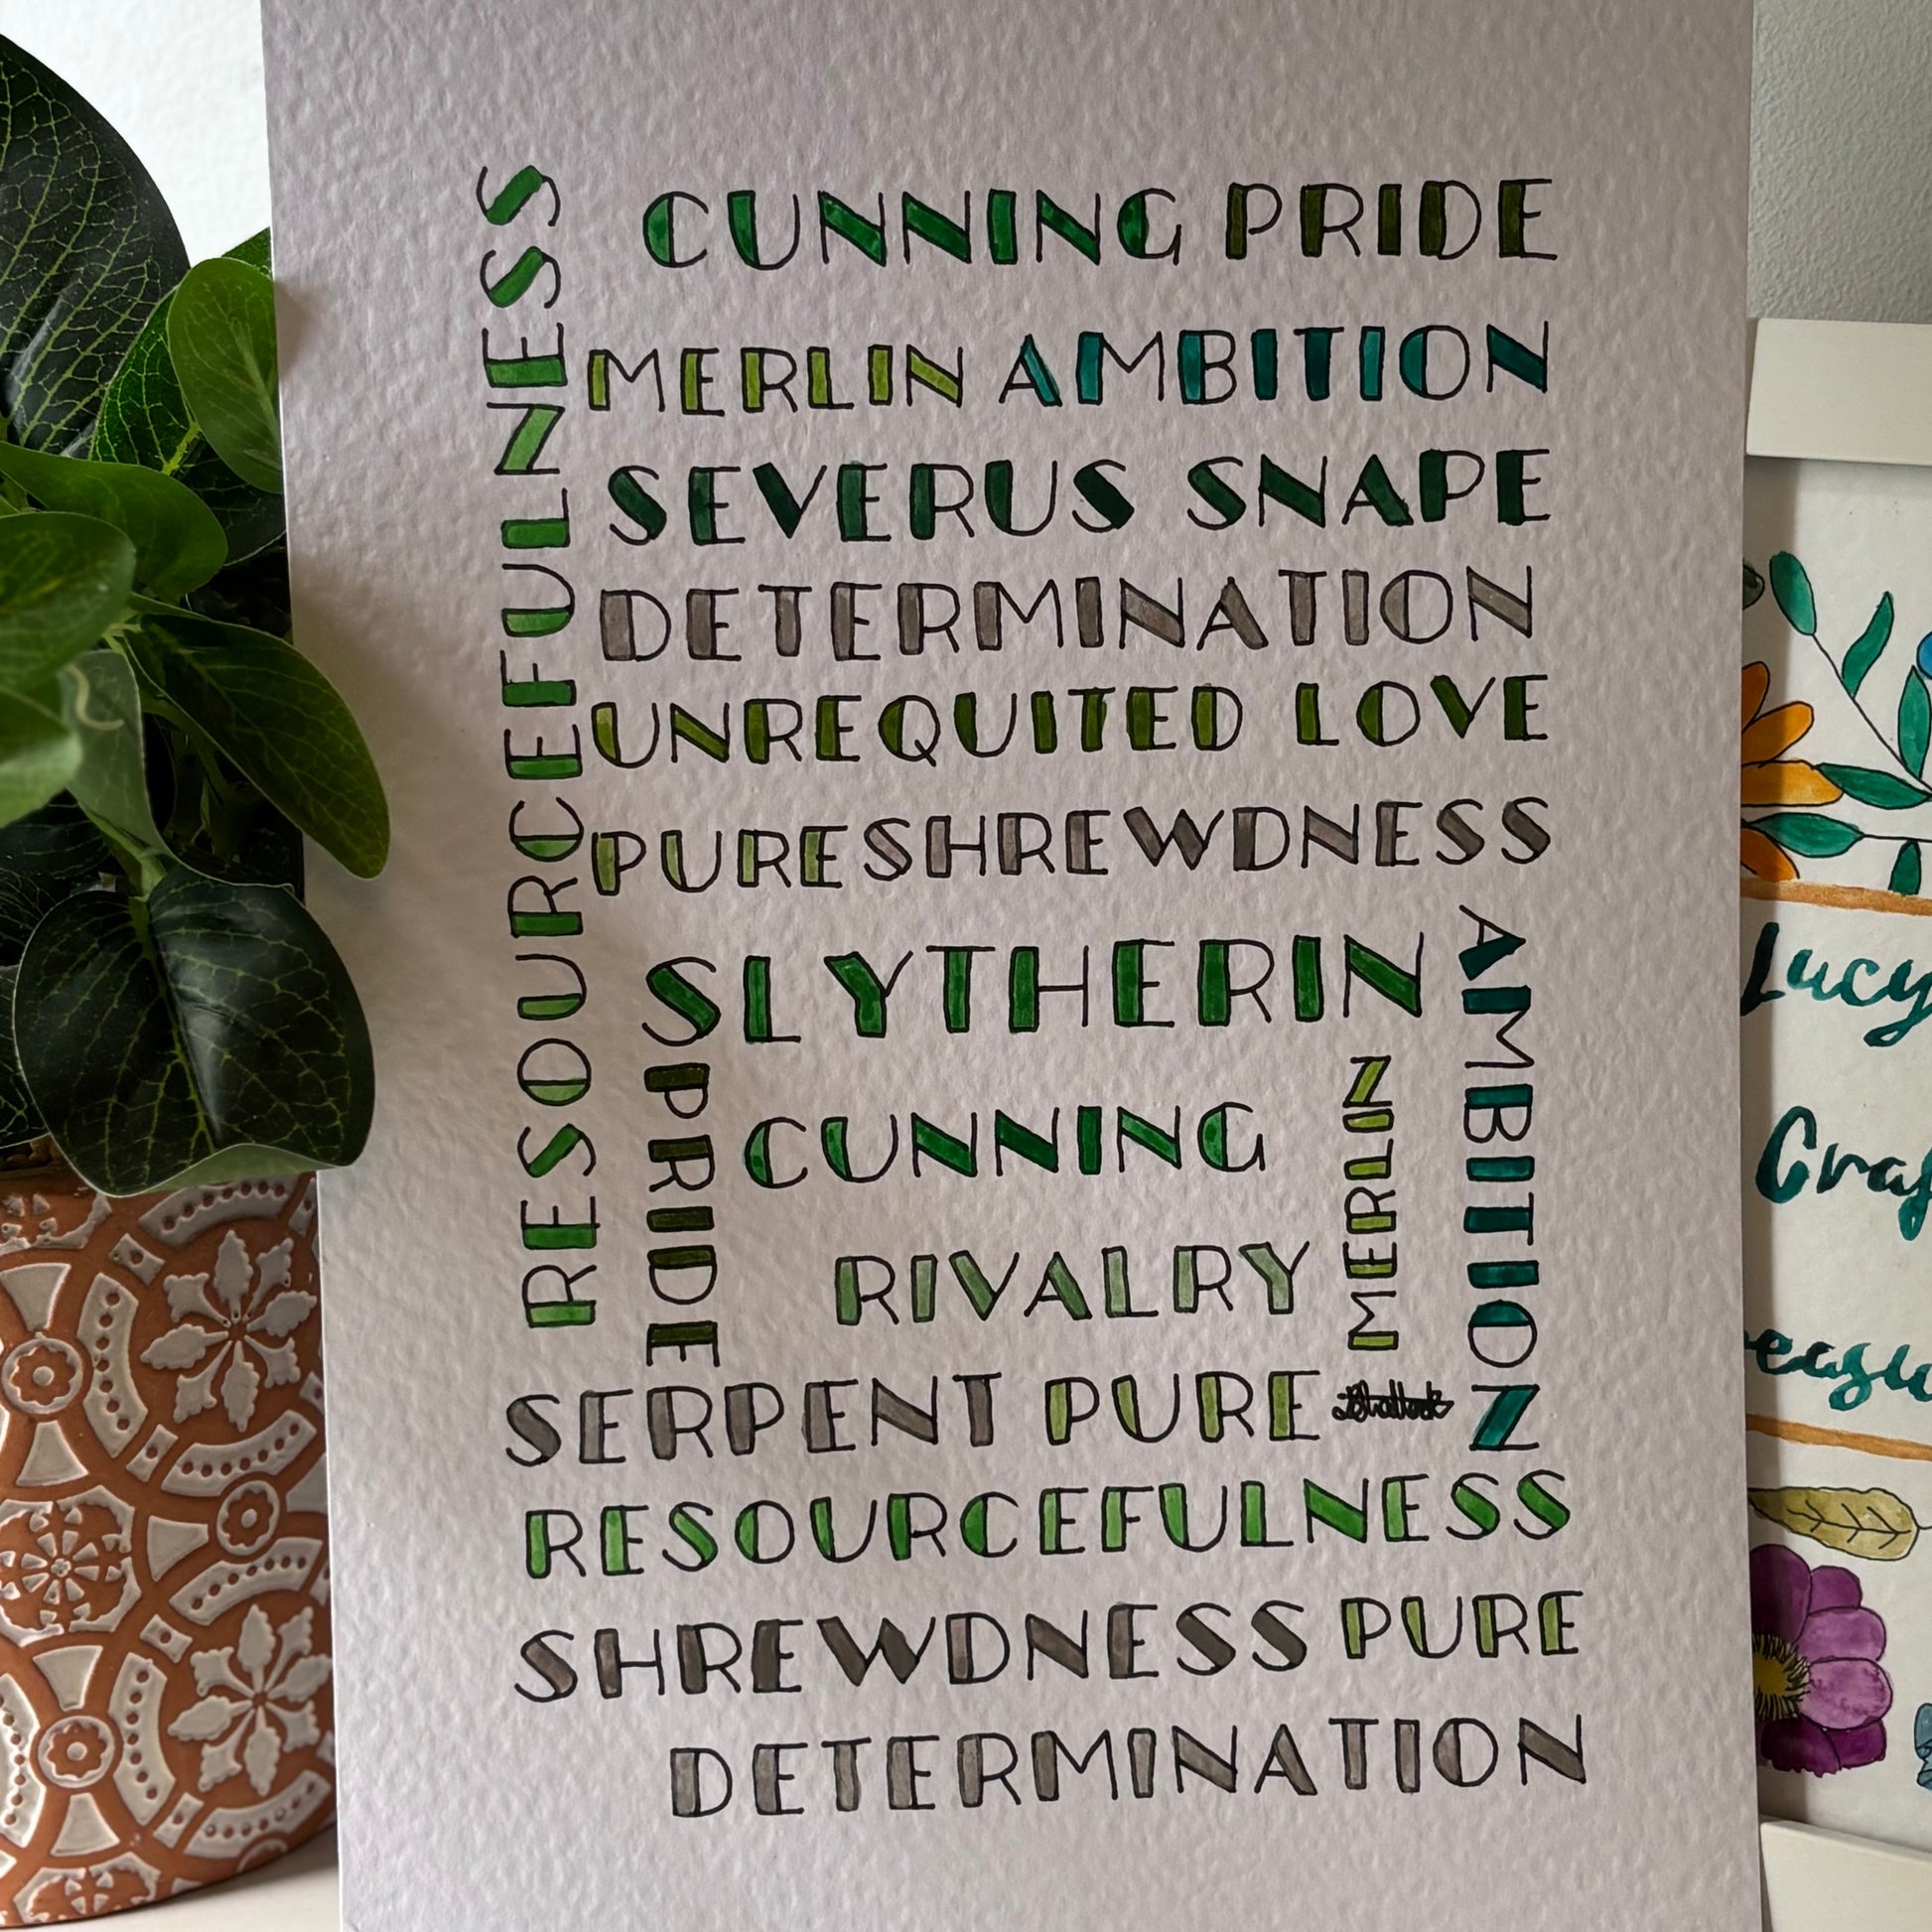 RESOURCEFULNESS
CUNNING PRIDE
MERLIN AMBITION
SEVERUS SNAPE
DETERMINATION
UNREQUITED LOVE
PURE SHREWDNESS
SLYTHERIN
AMBITION
PRIDE
CUNNING
MERLIN
RIVALRY
SERPENT PURE
RESOURCEFULNESS
SHREWDNESS PURE
DETERMINATION
Lucy